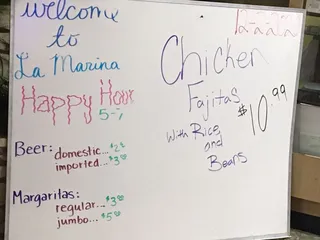 Welcome
to
La Marina
Happy Hour
5-7
Beer:
domestic...$2
imported...$3
Margaritas:
regular...$3
jumbo...$5
Chicken
Fajitas
$10.99
With Rice
and
Beans